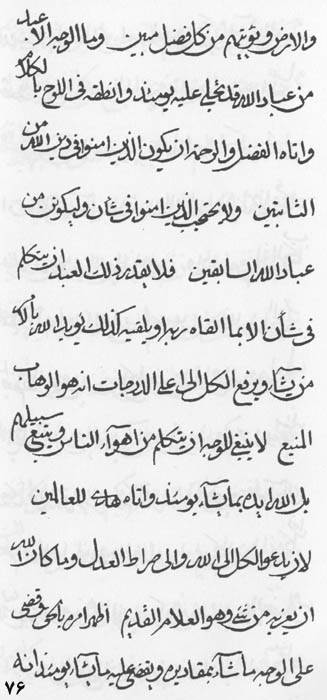 والارض و يؤتيهم من كل فضل مبين وما الوجه الا عبد
من عباد الله قد تجلى عليه يومئذ وانطقه في اللوح بالكلام
واتاه الفضل والرحمة ان يكون الذين امنوا في دين الله من
الثابتين ولا يحتجب الذين امنوا في شأن وليكونن من
عباد الله السابقين فلا يقدر ذلك العبد ان يتكلم
في شأن الا بما القاه ربه او يلقيه كذلك يؤيد الله بالاء
من يشاء ويرفع الكل الى اعلى الدرجات انه هو الوهاب
المنيع لا ينبغي للوجه ان يتكلم من اهواء الناس ويتبع سبيلهم
بل الله ايده بما يشاء يومئذ واتاه هدى للعالمين
لان يدعو الكل الى الله والى صراط العدل وما كان الله
ان يعزب من شئ وهو العلام القديم اظهر امره بالحق وقضى
على الوجه ما شاء بمقاديره ويقضي عليه ما يشاء يومئذ انه
٧۶